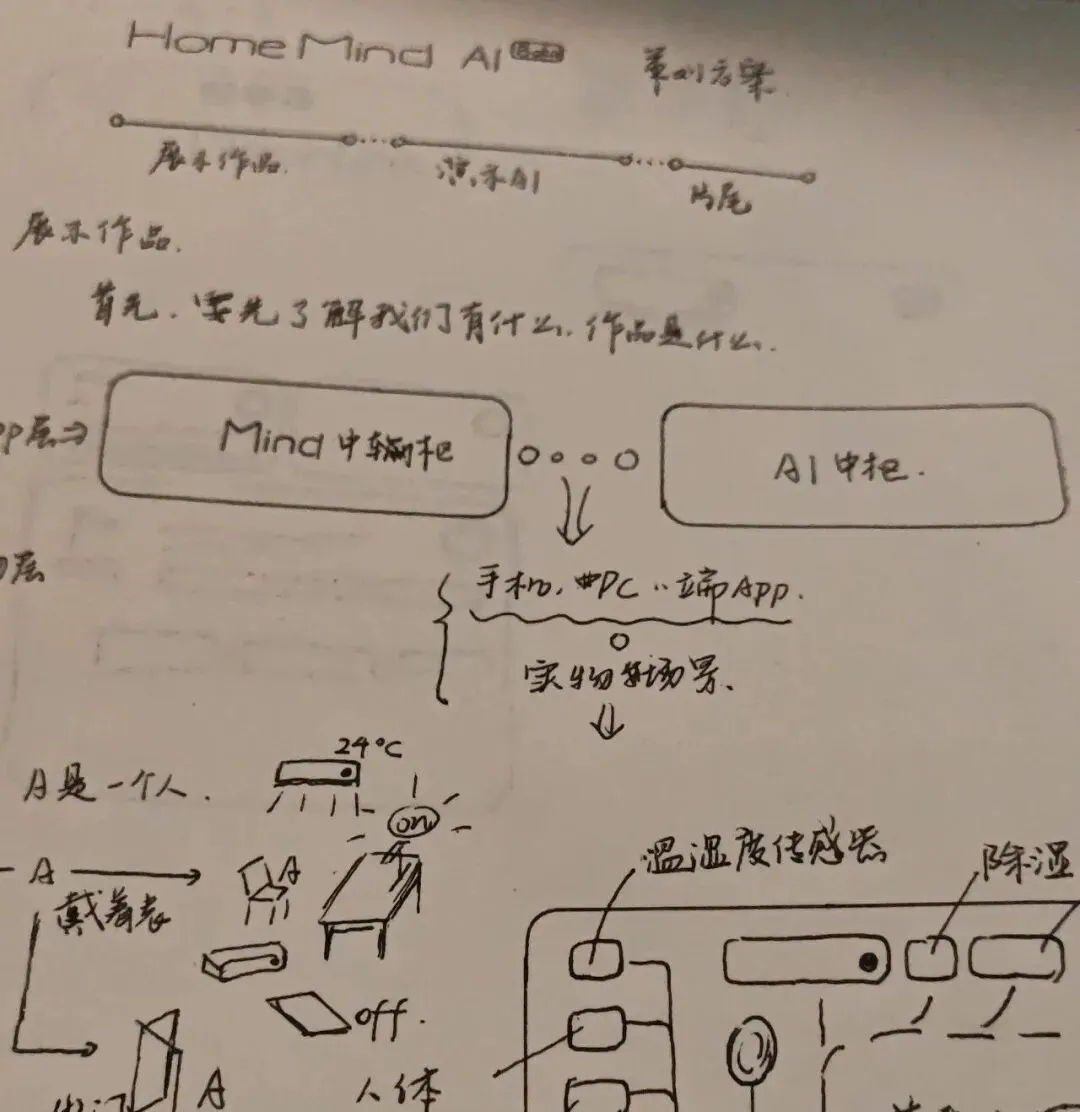 Home Mind AI 策划方案.
展示作品. 演示AI 片尾
展示作品.
首先.要先了解我们有什么.作品是什么.
层⇒ Mind 中辆杷 AI 中杷.
层
手机. PC..端App.
实物 场景.
24°C
A是一个人.
on
A A
戴着表
温湿度传感器 除湿
off.
A 人体